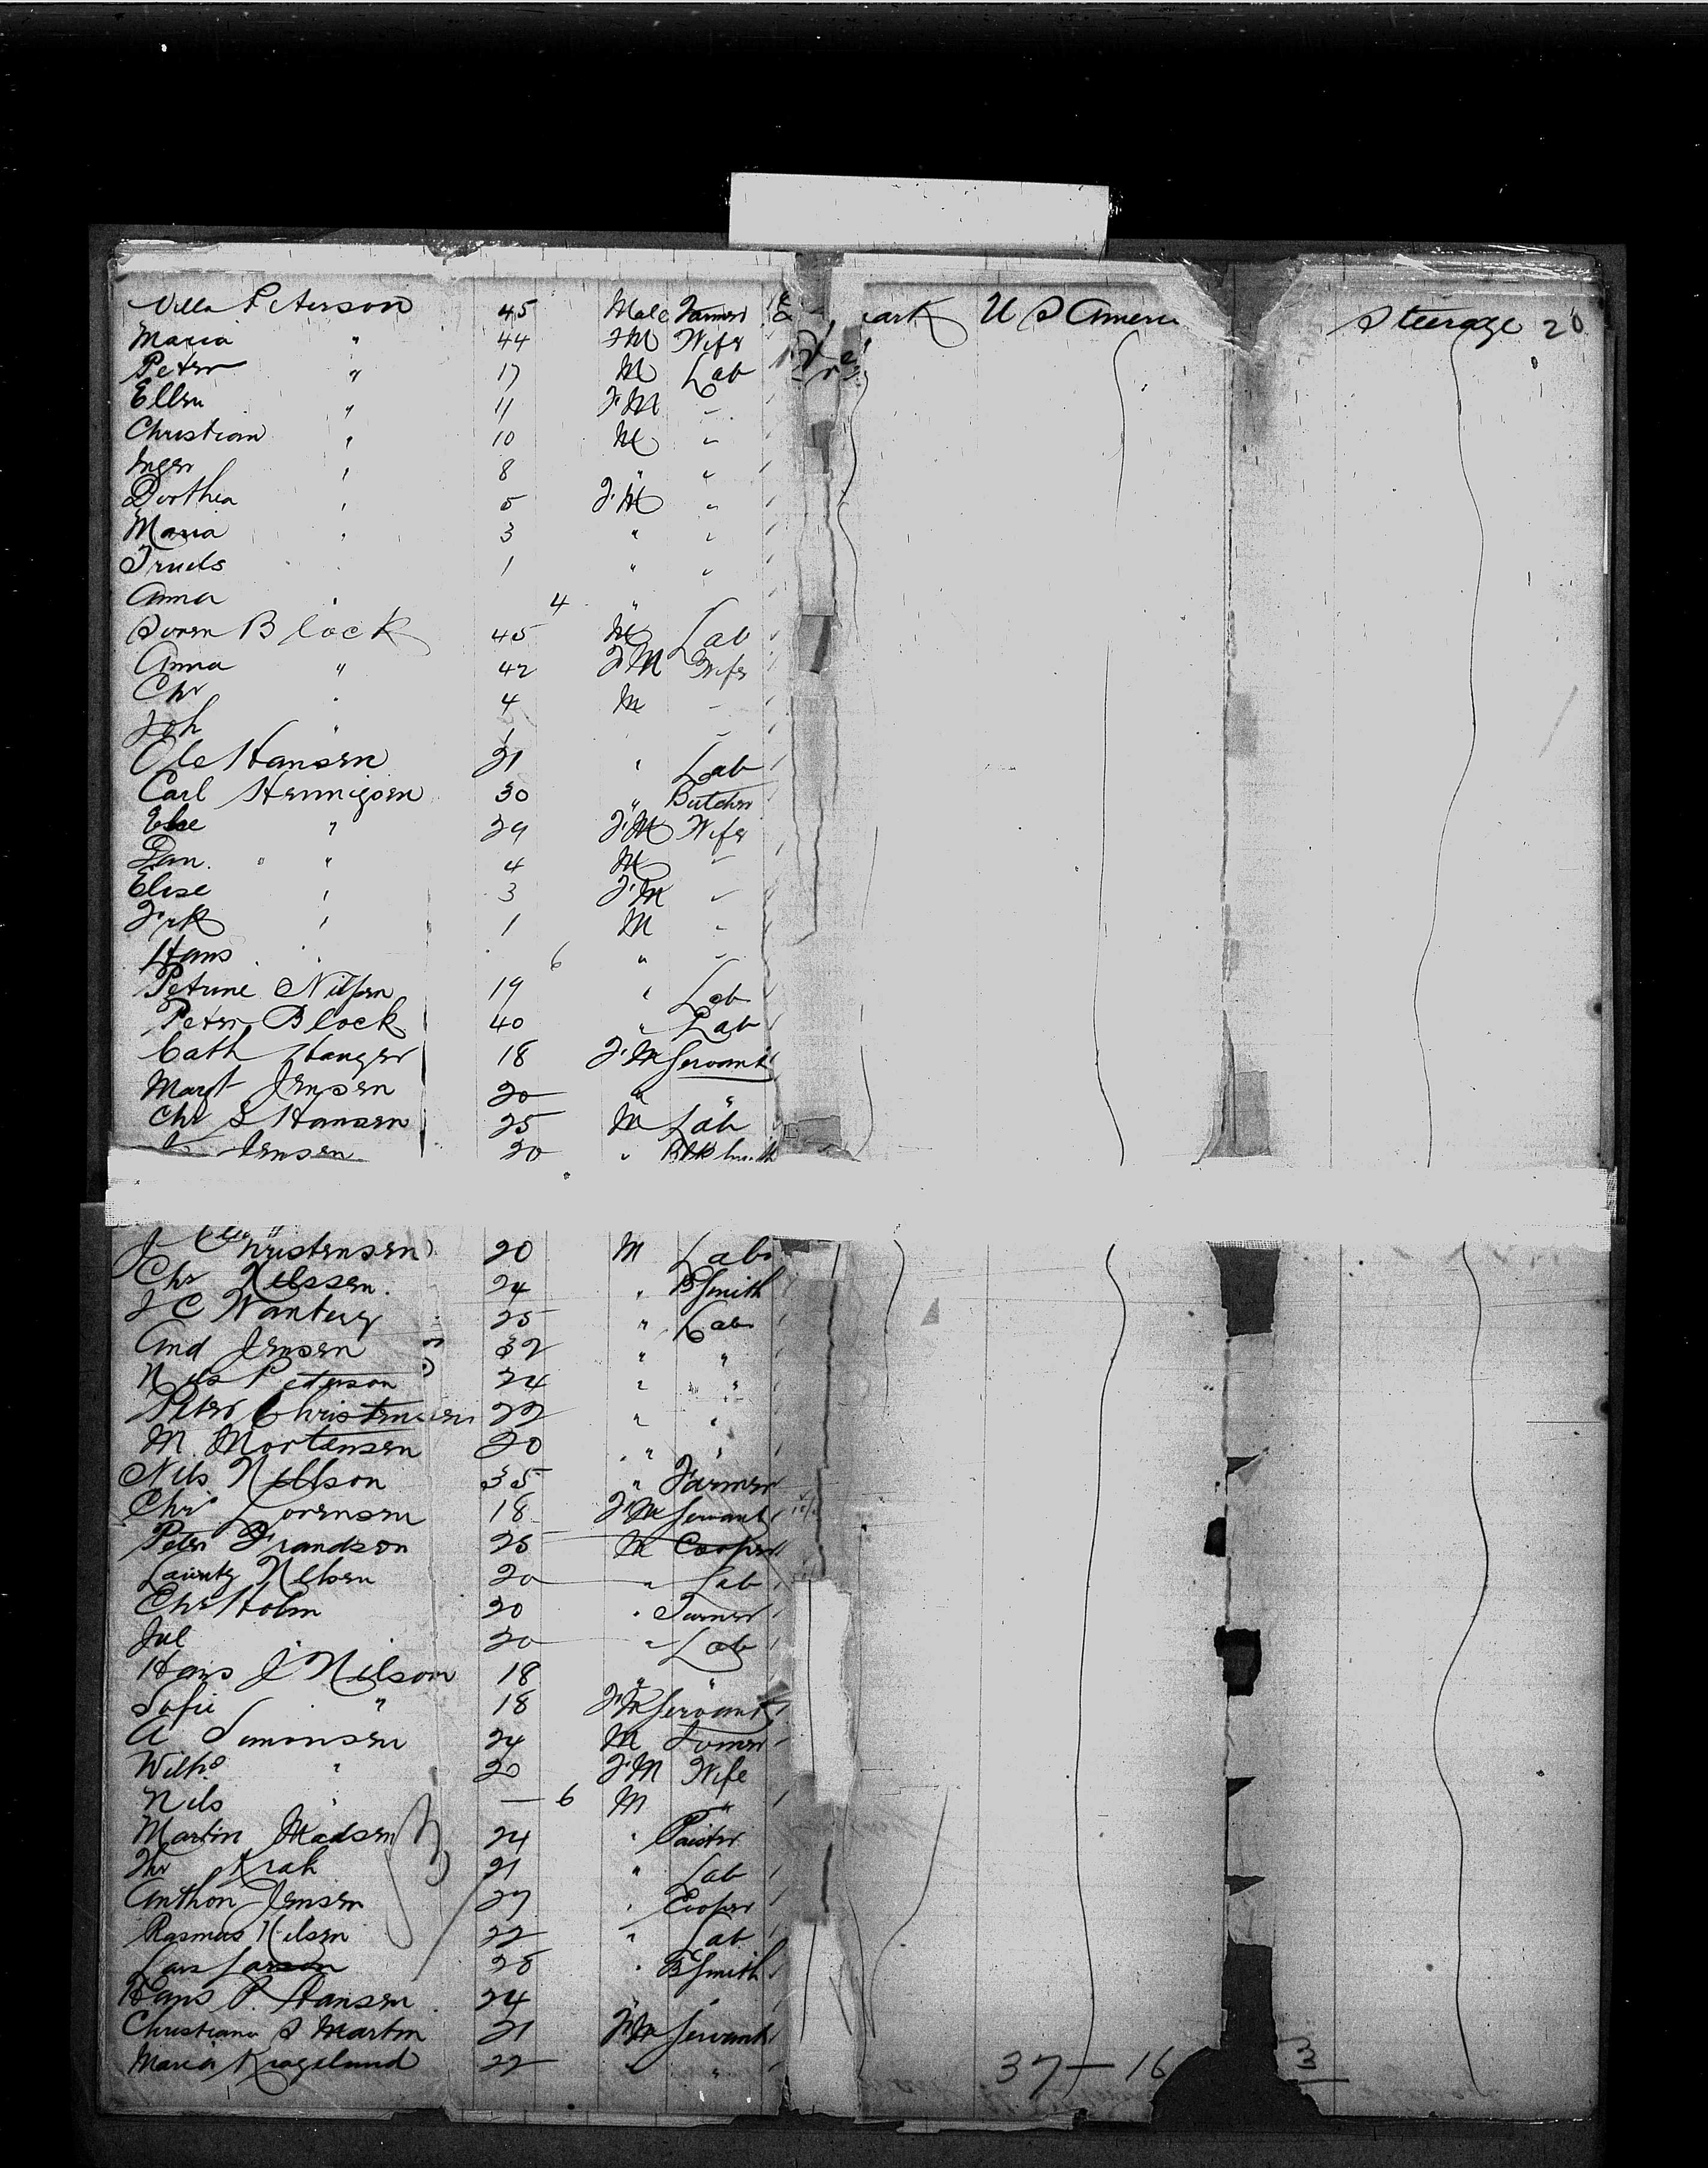 Villa Peterson 45 Male Farmer ark U S Ameri Steerage 20
Maria " 44 FM Wife
Peter " 17 M Lab
Ellen " 11 FM "
Christian " 10 M "
Inger " 8 " "
Dorthea " 5 FM "
Maria " 3 " "
Truels " 1 " "
Anna " 4 "
Soren Block 45 M Lab
Anna " 42 FM Wife
Chr " 4 M "
Joh " 1 "
Ole Hansen 21 " Lab
Carl Hennigsen 30 " Butcher
Else " 29 FM Wife
Dan. " " 4 M "
Elise " 3 FM "
Frk " 1 M "
Hans " 6 " "
Petrine Nilsen 19 " Lab
Peter Block 40 " Lab
Cath Hanger 18 FM Servant
Margt Jensen 20 " "
Chr S Hansen 25 M Lab
Jensen 20 " Blksmith
J Christensen 20 M Lab
Chr Nelssen 24 " BSmith
J C Wanberg 25 " Lab
And Jensen 32 " "
Nels Peterson 24 " "
Peter Christensen 22 " "
M. Mortensen 20 " "
Nils Nellson 35 " Farmer
Chr Lorensen 18 FM Servant
Peter Frandson 25 M Cooper
Lauritz Nelsen 20 " Lab
Chr Holm 20 " Turner
Jul 20 " Lab
Hans J Nilson 18 " "
Sofie " 18 FM Servant
A Simonsen 24 M
Wilhe " 20 FM Wife
Nils " — 6 M "
Martin Madsen 24 " Painter
Thr Krah 21 " Lab
Anthon Jensen 27 " Cooper
Rasmus Nilsen 22 " Lab
Lars Larson 28 " BSmith
Hans P. Hansen 24 " "
Christiane S Martin 21 FM Servant
Maria Kragelund 22 " "
37 — 16 3